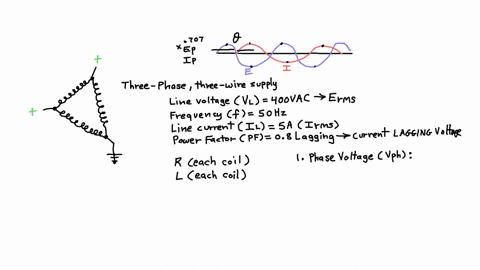 x .707
Ep
Ip
θ
E
I
+
+
Three-Phase, three-wire supply
Line voltage (VL) = 400VAC → Erms
Frequency (f) = 50Hz
Line current (IL) = 5A (Irms)
Power Factor (PF) = 0.8 Lagging → current LAGGING Voltage
R (each coil)
L (each coil)
1. Phase Voltage (Vph):